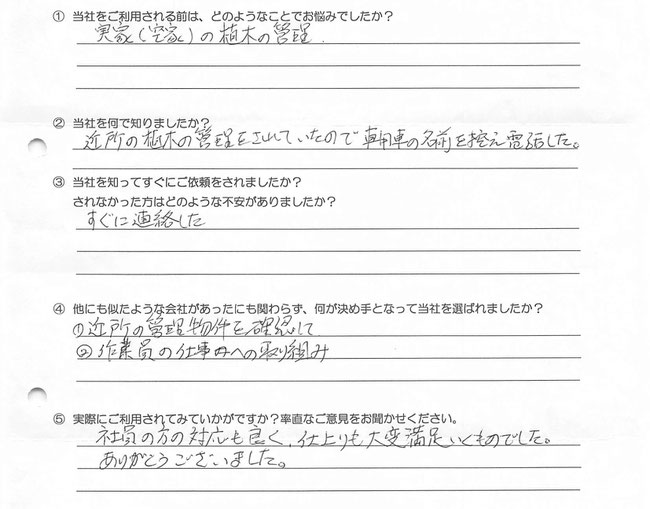 ① 当社をご利用される前は、どのようなことでお悩みでしたか?
実家(空家)の植木の管理.
② 当社を何で知りましたか?
近所の植木の管理をされていたので 専用車の名前を控え電話した。
③ 当社を知ってすぐにご依頼をされましたか?
されなかった方はどのような不安がありましたか?
すぐに連絡した
④ 他にも似たような会社があったにも関わらず、何が決め手となって当社を選ばれましたか?
①近所の管理物件を確認して
②作業員の仕事への取り組み
⑤ 実際にご利用されてみていかがですか?率直なご意見をお聞かせください。
社員の方の対応も良く、仕上りも大変満足いくものでした。
ありがとうございました。